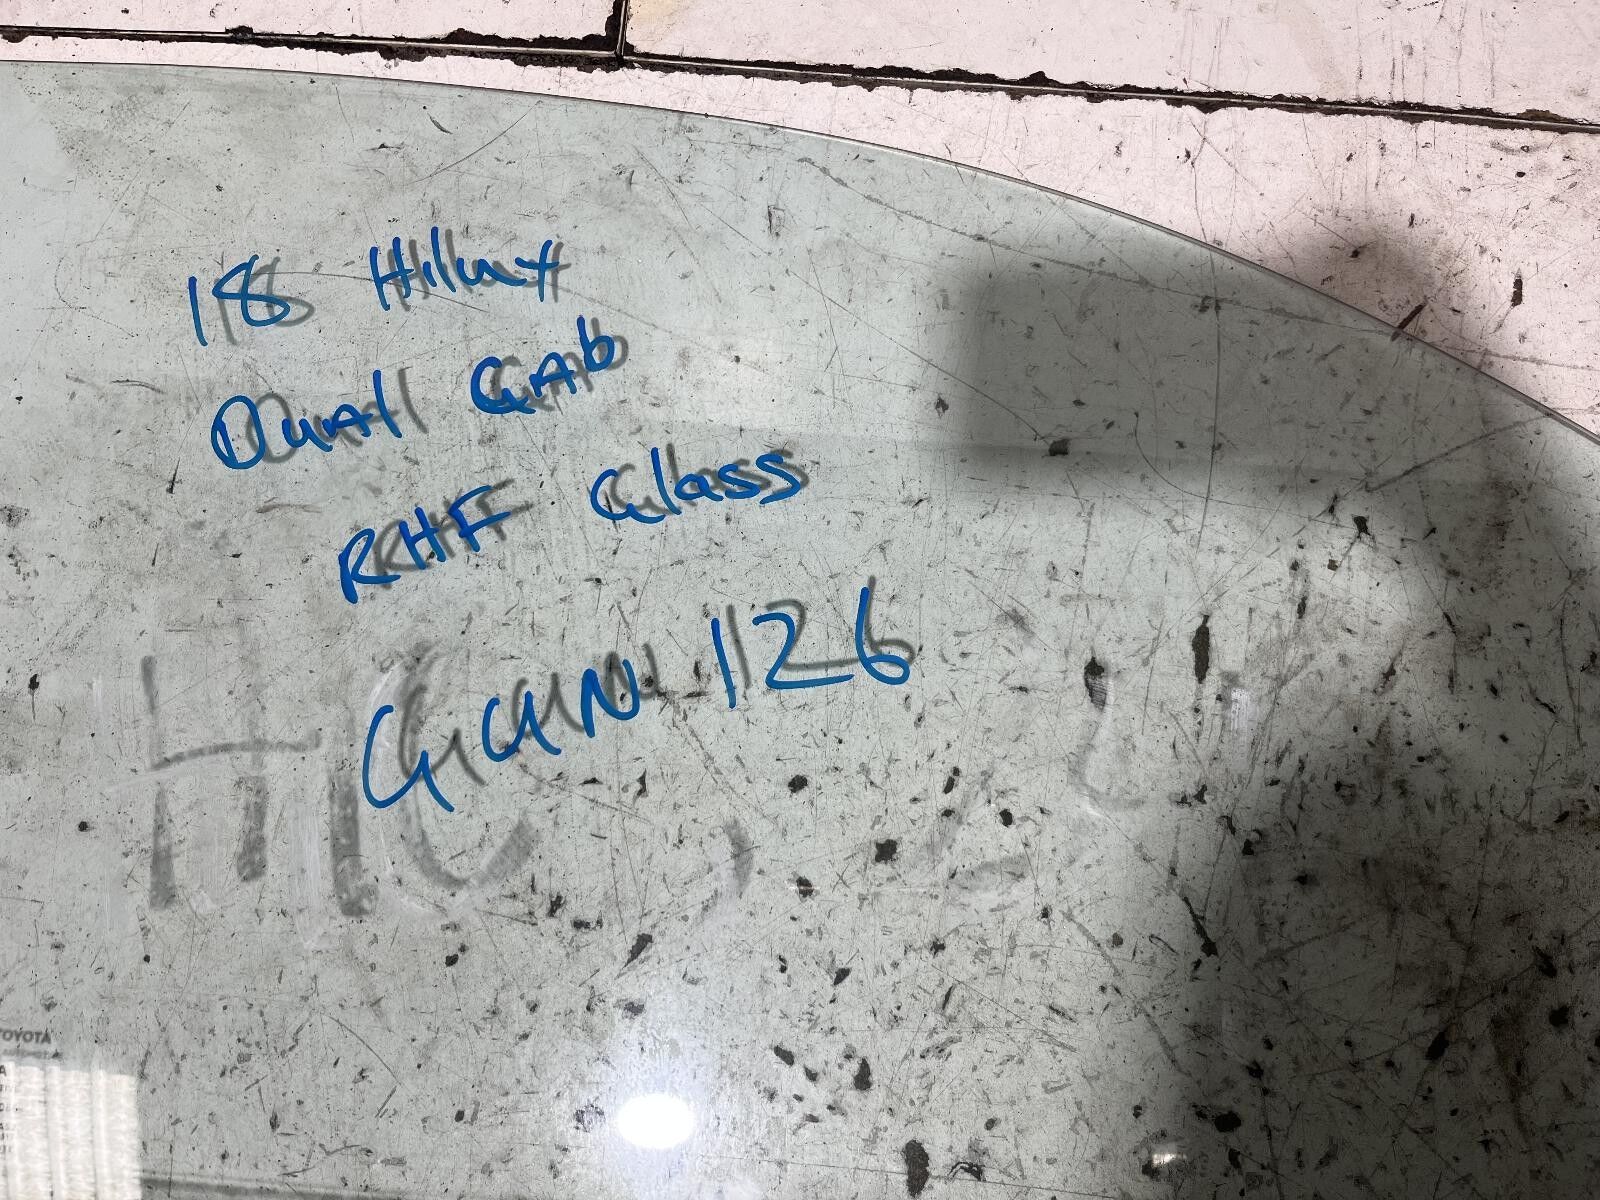 18 Hilux
Dual Cab
RHF Glass
GUN 126
TOYOTA